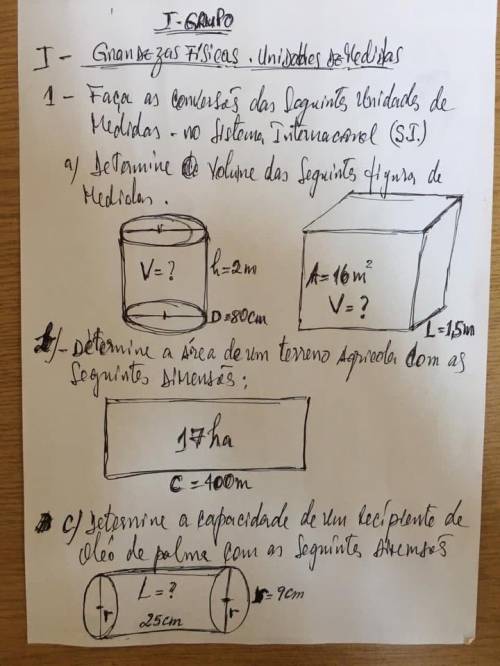 I - GRUPO
I - Grandezas Físicas. Unidades de Medidas
1 - Faça as conversãs das Seguintes Unidades de
Medidas - no Sistema Internacional (S.I.)
a) Determine o Volume das Seguintes figura de
Medidas.
V = ?
h = 2m
D = 80cm
A = 16m²
V = ?
L = 1,5m
b) - Determine a Área de um terreno Agricola com as
Seguintes Dimensãs;
17ha
C = 400m
c) Determine a capacidade de um recipiente de
oleô de palma com as Seguintes Dimensãs
r
L = ?
25cm
r
r = 9cm